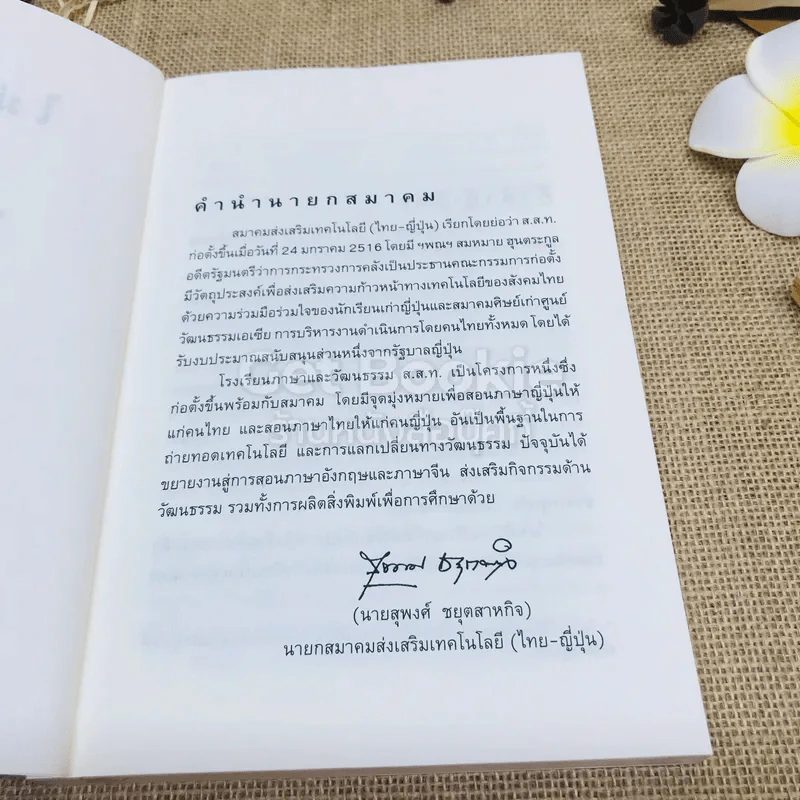 คำนำนายกสมาคม
สมาคมส่งเสริมเทคโนโลยี (ไทย-ญี่ปุ่น) เรียกโดยย่อว่า ส.ส.ท.
ก่อตั้งขึ้นเมื่อวันที่ 24 มกราคม 2516 โดยมี ฯพณฯ สมหมาย ฮุนตระกูล
อดีตรัฐมนตรีว่าการกระทรวงการคลังเป็นประธานคณะกรรมการก่อตั้ง
มีวัตถุประสงค์เพื่อส่งเสริมความก้าวหน้าทางเทคโนโลยีของสังคมไทย
ด้วยความร่วมมือร่วมใจของนักเรียนเก่าญี่ปุ่นและสมาคมศิษย์เก่าศูนย์
วัฒนธรรมเอเซีย การบริหารงานดำเนินการโดยคนไทยทั้งหมด โดยได้
รับงบประมาณสนับสนุนส่วนหนึ่งจากรัฐบาลญี่ปุ่น
โรงเรียนภาษาและวัฒนธรรม ส.ส.ท. เป็นโครงการหนึ่งซึ่ง
ก่อตั้งขึ้นพร้อมกับสมาคม โดยมีจุดมุ่งหมายเพื่อสอนภาษาญี่ปุ่นให้
แก่คนไทย และสอนภาษาไทยให้แก่คนญี่ปุ่น อันเป็นพื้นฐานในการ
ถ่ายทอดเทคโนโลยี และการแลกเปลี่ยนทางวัฒนธรรม ปัจจุบันได้
ขยายงานสู่การสอนภาษาอังกฤษและภาษาจีน ส่งเสริมกิจกรรมด้าน
วัฒนธรรม รวมทั้งการผลิตสิ่งพิมพ์เพื่อการศึกษาด้วย
(นายสุพงศ์ ชยุตสาหกิจ)
นายกสมาคมส่งเสริมเทคโนโลยี (ไทย-ญี่ปุ่น)